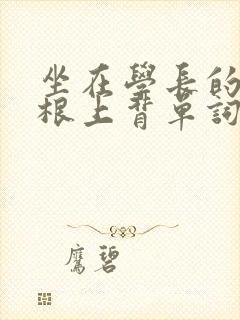 坐在學長的
根上背單詞
鷹碧